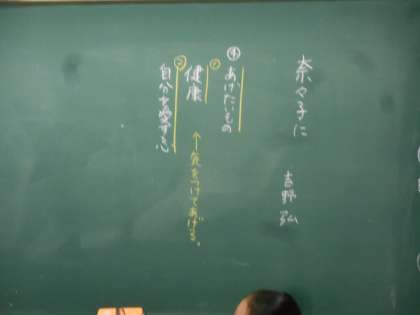 奈々子に
吉野弘
④ あげたいもの
① 健康
↑気をつけてあげる。
② 自分を愛する心